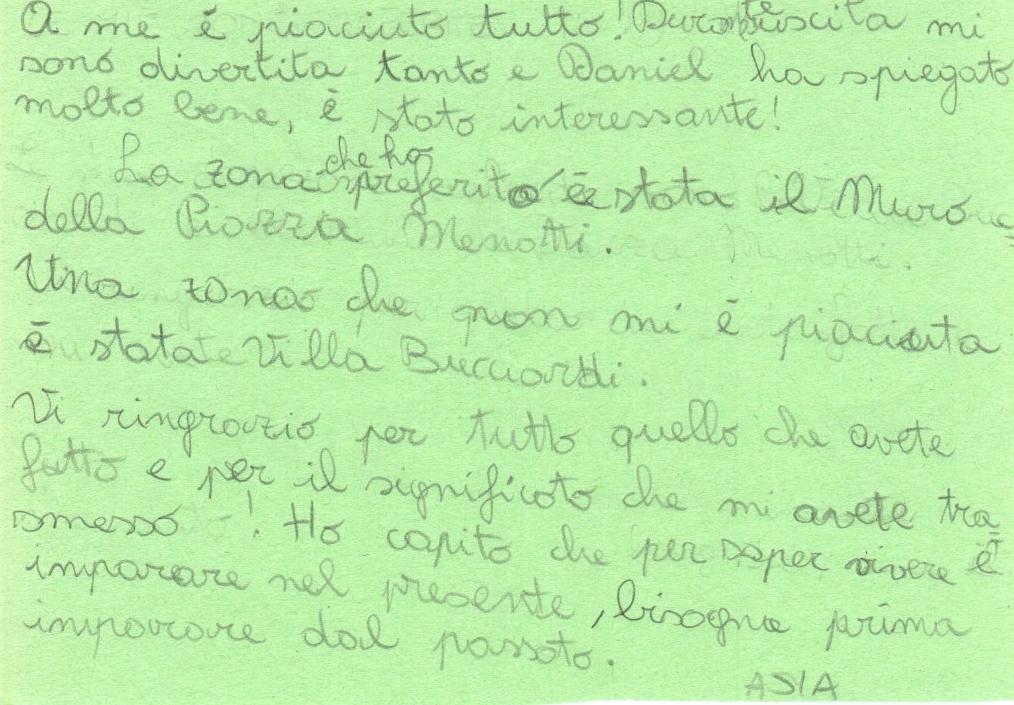 A me é piaciuto tutto! Durante uscita mi
sono divertita tanto e Daniel ha spiegato
molto bene, è stato interessante!
La zona che ho preferito è stata il Muro
della Piazza Menotti.
Una zona che non mi è piaciuta
è stata Villa Bucciardi.
Vi ringrazio per tutto quello che avete
fatto e per il significato che mi avete tra
smesso! Ho capito che per saper vivere e
imparare nel presente, bisogna prima
imparare dal passato.
ASIA